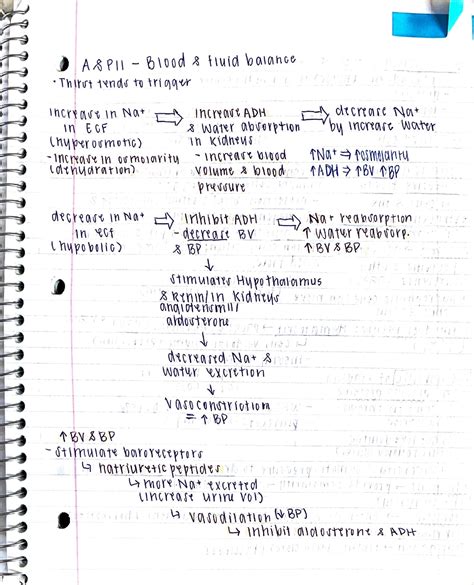 A&P II - Blood & fluid balance
• Thirst tends to trigger
increase in Na+ ⇒ increase ADH ⇒ decrease Na+
in ECF & water absorption by increase water
(hyperosmotic) in kidneys
- increase in osmolarity - increase blood ↑Na+ ⇒ ↑osmolarity
(dehydration) volume & blood ↑ADH ⇒ ↑BV ↑BP
pressure
decrease in Na+ ⇒ Inhibit ADH ⇒ Na+ reabsorption
in ecf - decrease BV ↑ water reabsorp.
(hypobolic) & BP ↑ BV & BP
↓
stimulates Hypothalamus
& Renin/in kidneys
angiotensin II/
aldosterone
↓
decreased Na+ &
water excretion
↓
vasoconstriction
= ↑ BP
↑ BV & BP
- stimulate baroreceptors
↳ natriuretic peptides
↳ more Na+ excreted
(increase urine vol)
↳ vasodilation (↓ BP)
↳ inhibit aldosterone & ADH